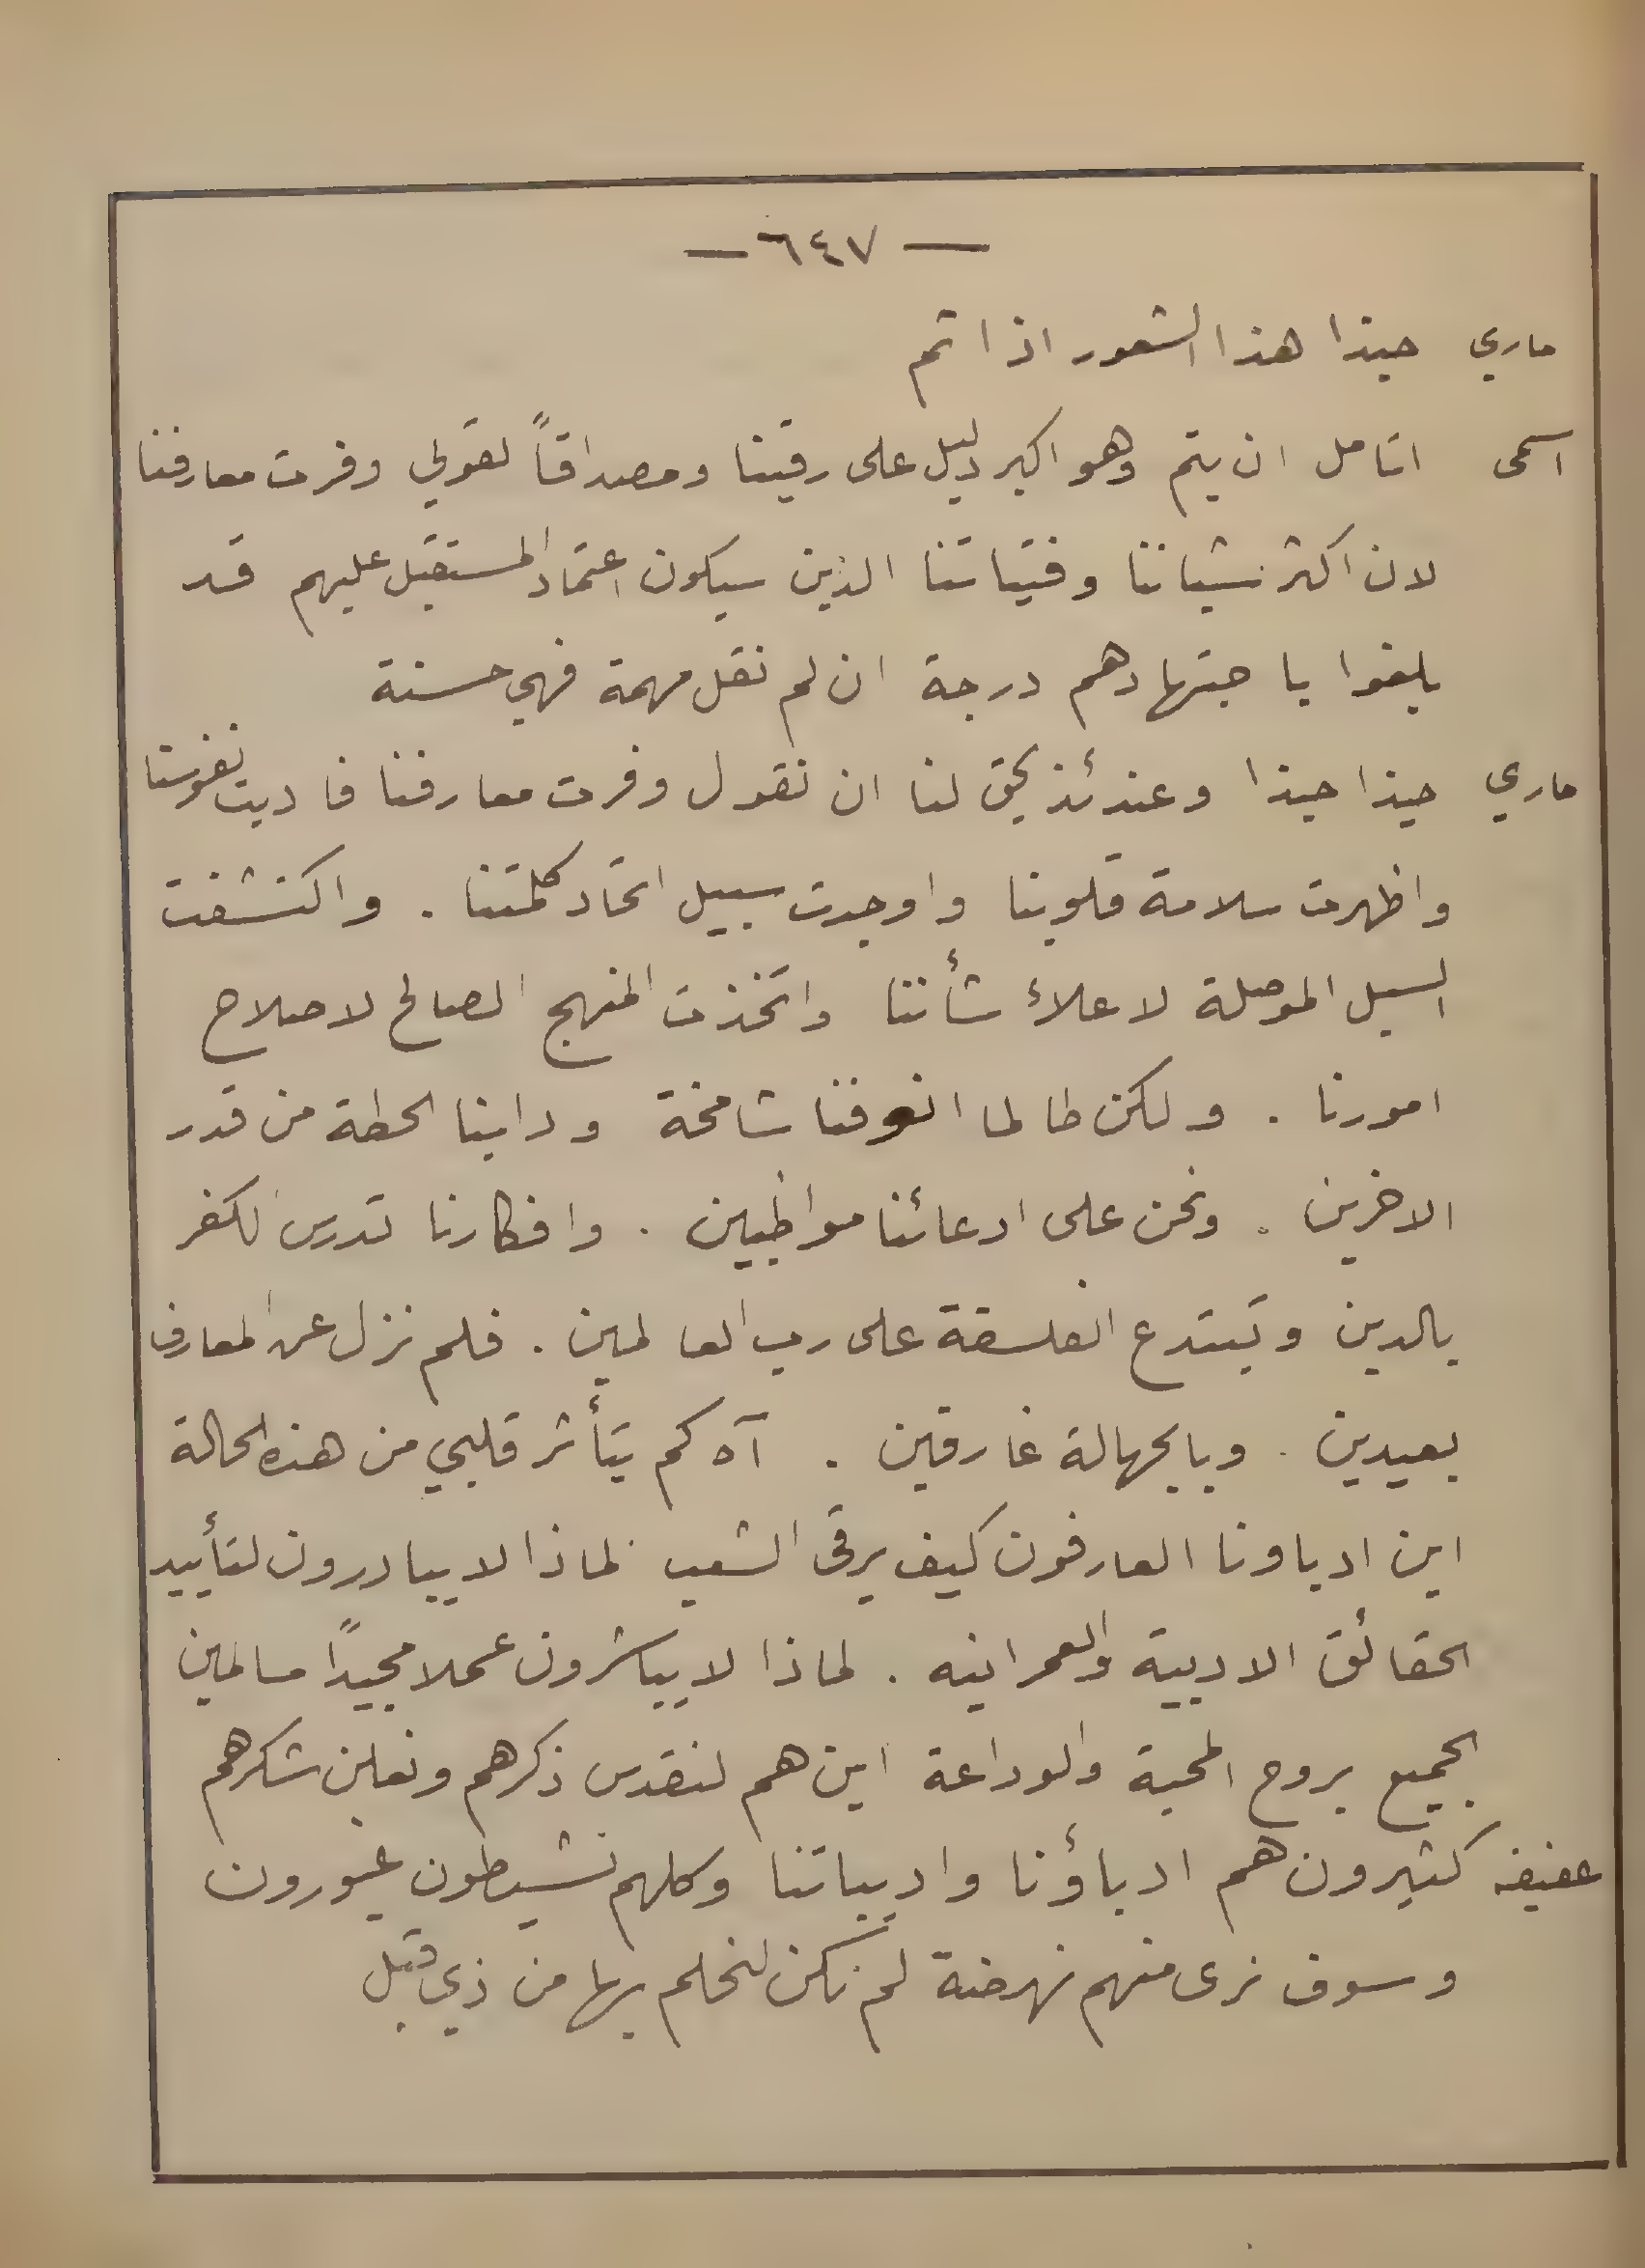 — ٦٤٧ —
ماري حبذا هذا الشعور اذا تم
اسمى اتامل ان يتم وهو اكبر دليل على رقينا ومصداقاً لقولي وفرت معارفنا
لان اكثر شباننا وفتياتنا الذين سيكون اعتماد المستقبل عليهم قد
بلغوا باجتهادهم درجة ان لم نقل مهمة فهي حسنة
ماري حبذا حبذا وعندئذ يحق لنا ان نقول وفرت معارفنا فاديت نفوسنا
واظهرت سلامة قلوبنا واوجدت سبيل اتحاد كلمتنا . واكتشفت
السبل الموصلة لاعلاء شأننا واتخذت المنهج الصالح لاصلاح
امورنا . ولكن طالما انوفنا شامخة ودابنا الحطة من قدر
الاخرين . ونحن على ادعائنا مواظبين . وافكارنا تدرس الكفر
بالدين وتبتدع الفلسفة على رب العالمين . فلم نزل عن المعارف
بعيدين . وبالجهالة غارقين . آه كم يتأثر قلبي من هذه الحالة
اين ادباونا العارفون كيف يرقى الشعب لماذا لا يبادرون لتأييد
الحقائق الادبية والعمرانيه . لماذا لا يباشرون عملا مجيداً مسالمين
الجميع بروح المحبة والوداعة اين هم لنقدس ذكرهم ونعلن شكرهم
عفيفه كثيرون هم ادباؤنا واديباتنا وكلهم نشيطون غيورون
وسوف نرى منهم نهضة لم نكن لنحلم بها من ذي قبل